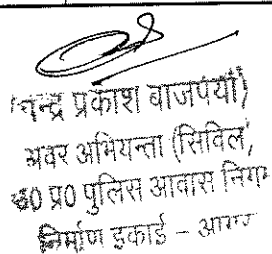 चन्द्र प्रकाश बाजपेयी)
अवर अभियन्ता (सिविल)
उ0 प्र0 पुलिस आवास निगम
निर्माण इकाई – आगरा